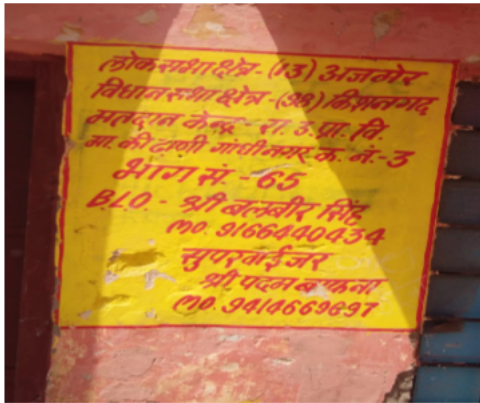 लोकसभा क्षेत्र-(13) अजमेर
विधानसभा क्षेत्र-(98) किशनगढ़
मतदान केन्द्र- रा. उ. प्रा. वि.
मा. की ढाणी गांधीनगर क. नं.-3
भाग सं. -65
B.L.O. - श्री बलबीर सिंह
mo. 9166440434
सुपरवाईजर
श्री पदम बाफना
mo. 9414669697